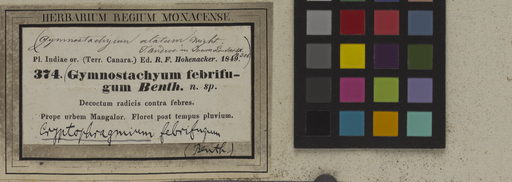 HERBARIUM REGIUM MONACENSE.
(Gymnostachyum alatum Wight.
T. Anders. in Journ. Linn. Soc.
Pl. Indiae or. (Terr. Canara.) Ed. R. F. Hohenacker. 1849.
374. (Gymnostachyum febrifu-
gum Benth. n. sp.
Decoctum radicis contra febres.
Prope urbem Mangalor. Floret post tempus pluvium.
Cryptophragmium febrifugum
(Benth.)